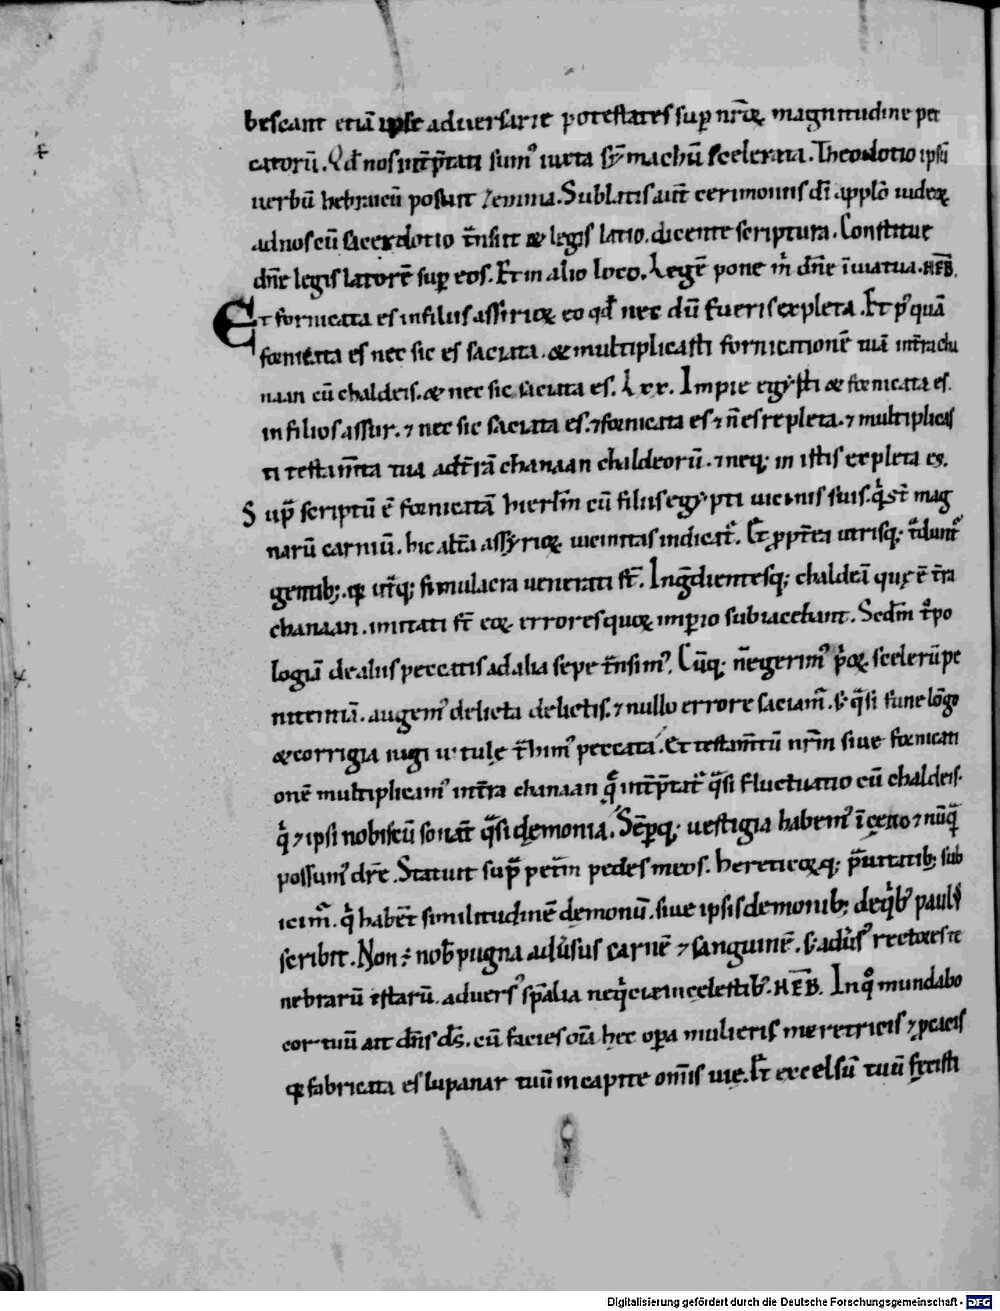 bescant etiā ipse adversarie potestates sup nr̄oꝝ magnitudine pec
catorū. Qd̄ nos int̄p̄tati sumꝰ iuxta sẏmachū scelerata. Theodotio ipsū
uerbū hebraicū posuit zemma. Sublatis aut̄ cerimoniis dī applō iudeoꝝ
ad nos cū sacerdotio t̄nsiit & legis latio. dicente scriptura. Constitue
dn̄e legis latorē sup eos. Et in alio loco. Legē pone m̄ dn̄e ī uia tua. HEB.
Et fornicata es in filiis assirioꝝ eo qd̄ nec dū fueris expleta. Et pꝰquā
fornicata es nec sic es saciata. & multiplicasti fornicationē tuā in t̄ra cha
naan cū chaldeis. & nec sic saciata es. Lxx. Impie egẏsti & fornicata es
in filios assur. ⁊ nec sic saciata es. ⁊ fornicata es ⁊ n̄ es repleta. ⁊ multiplicas
ti testam̄ta tua ad t̄rā chanaan chaldeorū. ⁊ neq; in istis expleta es.
Sup̄ scriptū ē fornicatā hierlm̄ cū filiis egẏpti uicinis suis. q̄ st̄ mag
narū carniū. hic alt̄a assẏrioꝝ uicinitas indicatꝰ. Et ꝓpt̄ea utrisq; t̄duntꝰ
gentib;. qꝫ utr̄q; simulacra uenerati st̄. Ingr̄dientesq; chaldeā quę ē t̄ra
chanaan. imitati st̄ eoꝝ errores quoꝝ imꝑio subiacebant. Scdm̄ t̄po
logiā de aliis peccatis ad alia sepe t̄nsimꝰ. Cūq; n̄ egerimꝰ p̄oꝝ scelerū pe
nitentiā. augemꝰ delicta delictis. ⁊ nullo errore saciam̄. s; q̄si fune lōgo
& corrigia iugi uitulę t̄himꝰ peccata. Et testam̄tū nr̄m siue fornicati
onē multiplicamꝰ in t̄ra chanaan q̄ int̄p̄tatꝰ q̄si fluctuatio cū chaldeis.
q̄ ⁊ ipsi nobiscū sonāt q̄si dęmonia. Sēꝑq; uestigia habemꝰ ī cęno ⁊ nūq̄
possumꝰ dr̄e. Statuit sup̄ petrā pedes meos. hereticoꝝq; p̄uitatib; sub
icim̄. q̄ habēt similitudinē dęmonū. siue ipsis demonib; de q̄bꝰ paulꝰ
scribit. Non ÷ nob̄ pugna adūsus carnē ⁊ sanguinē. s; adūsꝰ rectores te
nebrarū istarū. adversꝰ sp̄alia neq̄cię in celestibꝰ. HEB. In qͦ mundabo
cor tuū ait dn̄s ds̄. cū facies oīa hec oꝑa mulieris meretricis ⁊ ꝓcacis
qꝫ fabricata es lupanar tuū in capite om̄is uię. Et excelsū tuū fecisti
Digitalisierung gefördert durch die Deutsche Forschungsgemeinschaft - DFG